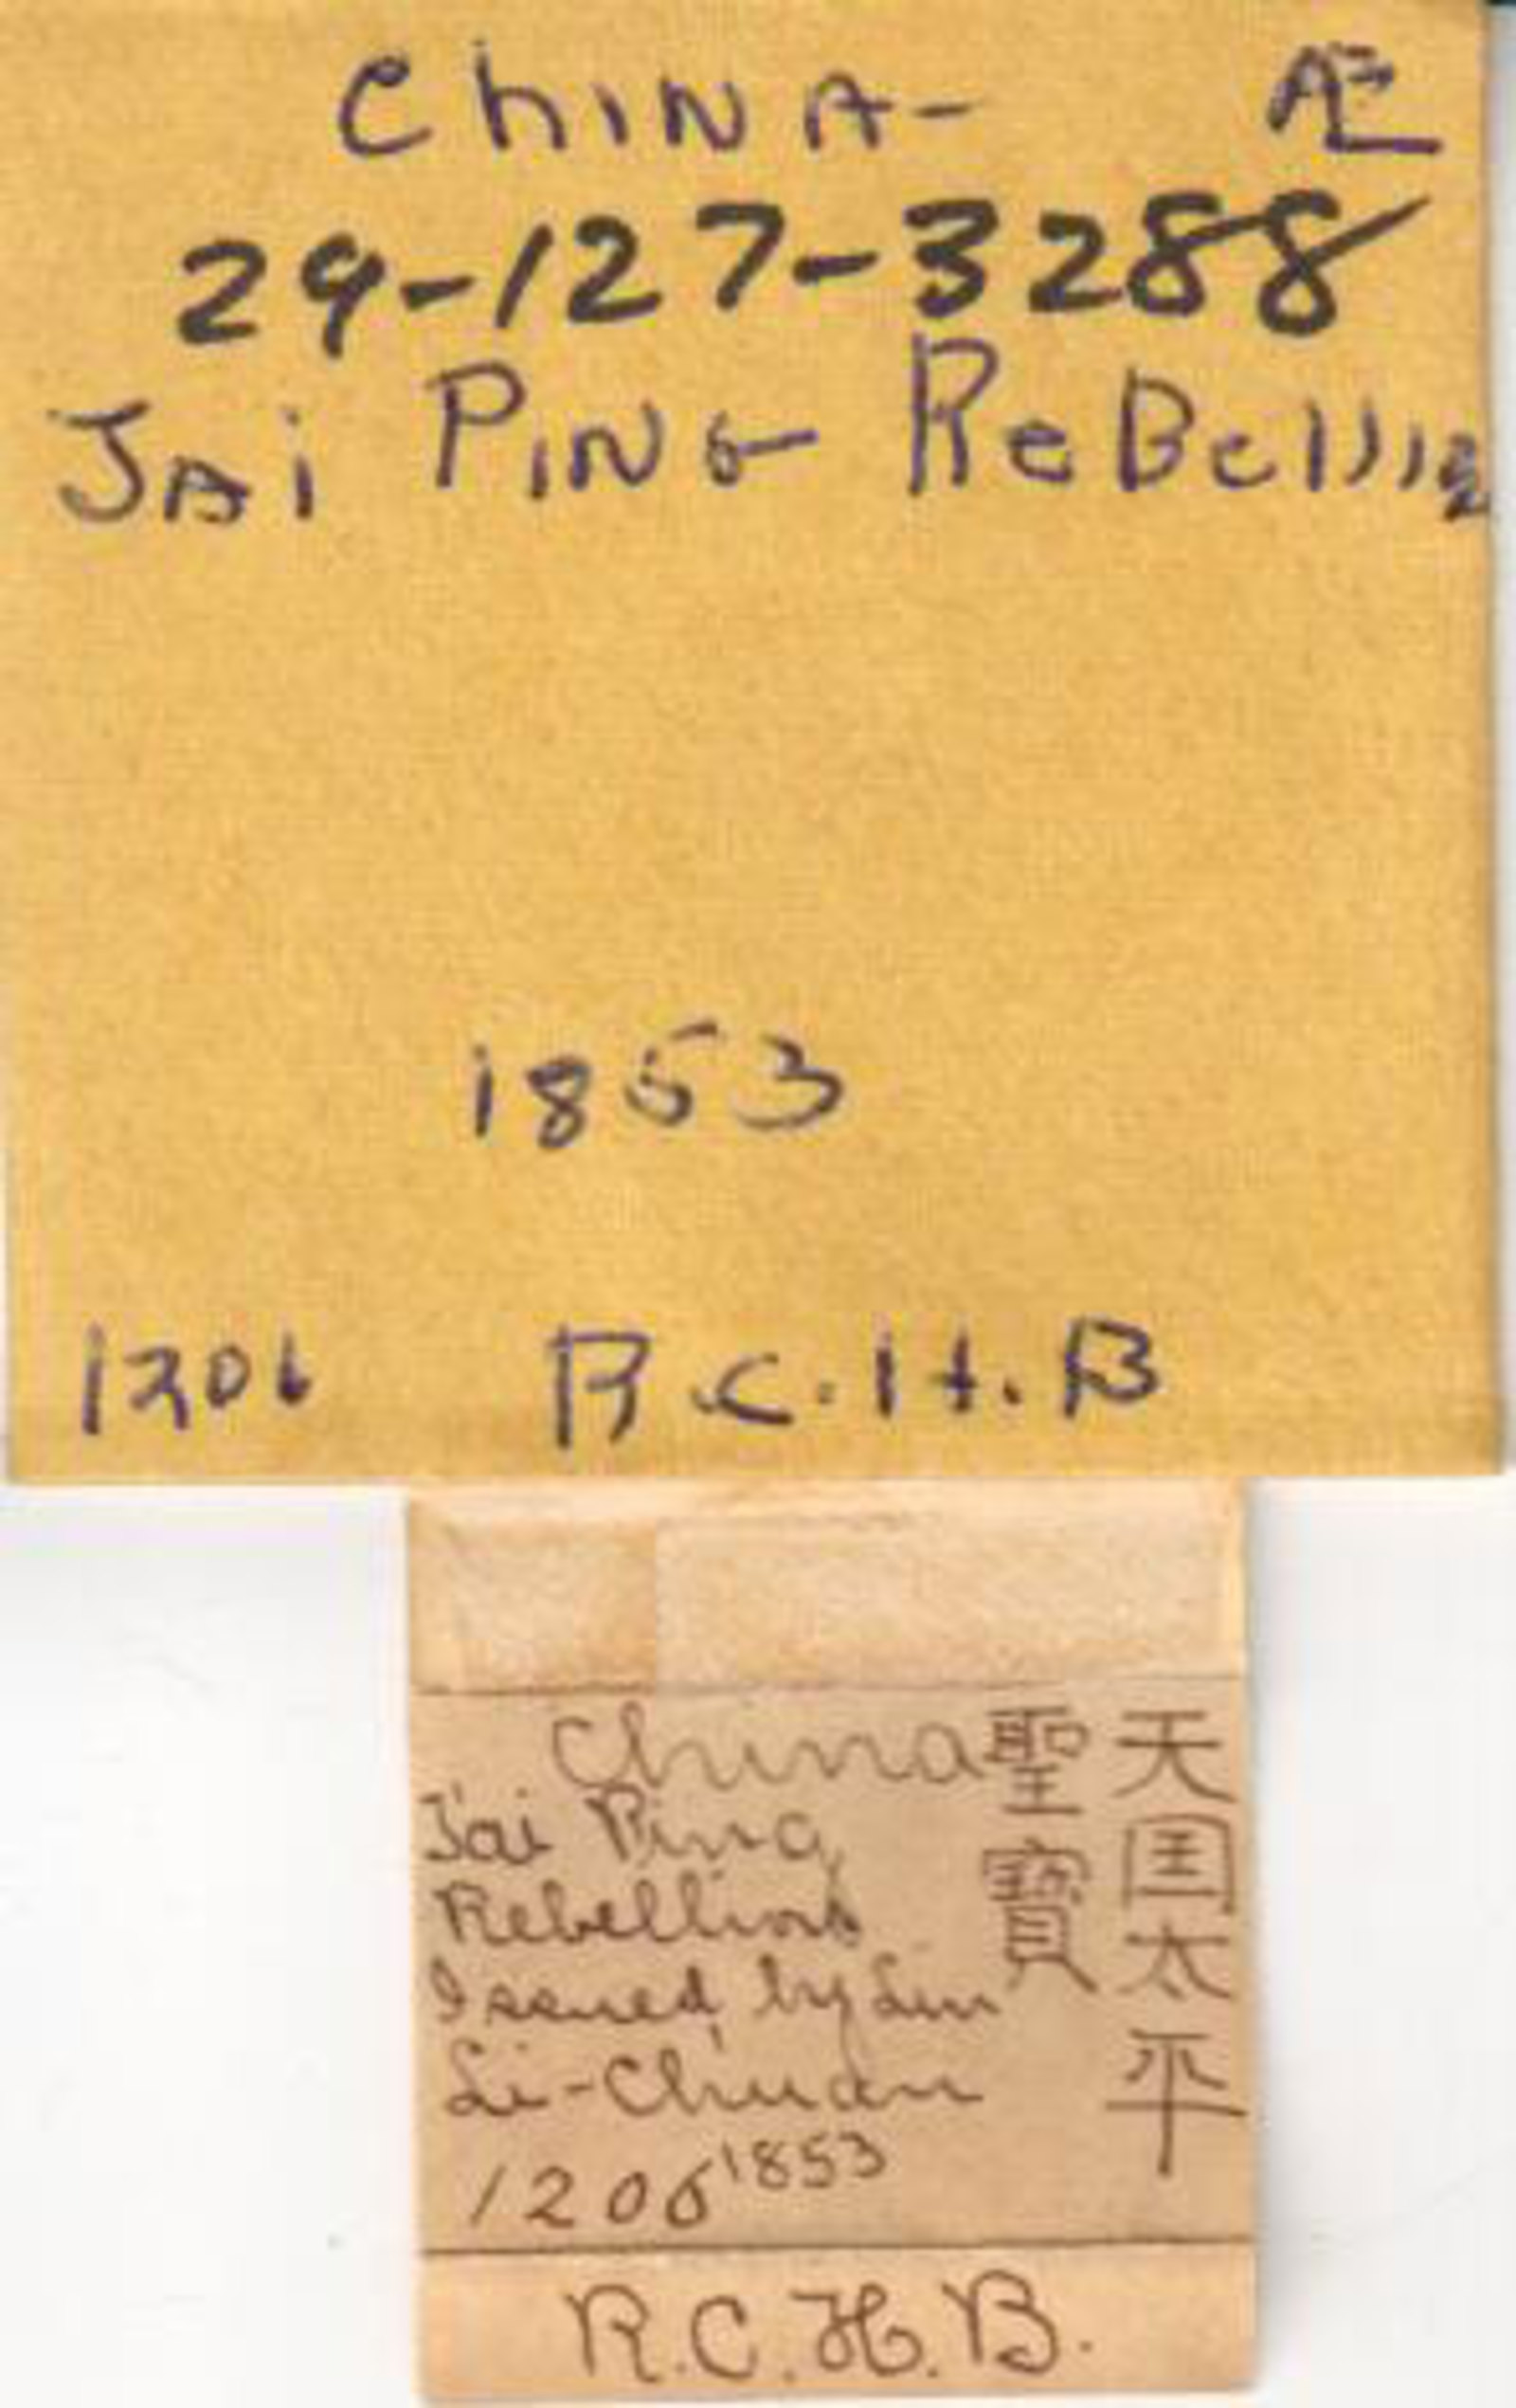 CHINA- Æ
29-127-3288
JAi PING ReBellion
1853
1206 R.C.H.B
China
Jai Ping
Rebellion
Issued by Lin
Li-Chuan
1206 1853
天囯太平
聖寶
R.C.H.B.